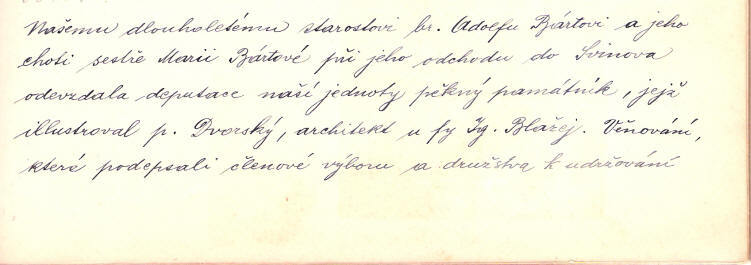 Našemu dlouholetému starostovi br. Adolfu Bártovi a jeho
choti sestře Marii Bártové při jeho odchodu do Svinova
odevzdala deputace naší jednoty pěkný památník, jejž
illustroval p. Dvorský, architekt u fy Ig. Blažej. Věnování,
které podepsali členové výboru a družstva k udržování